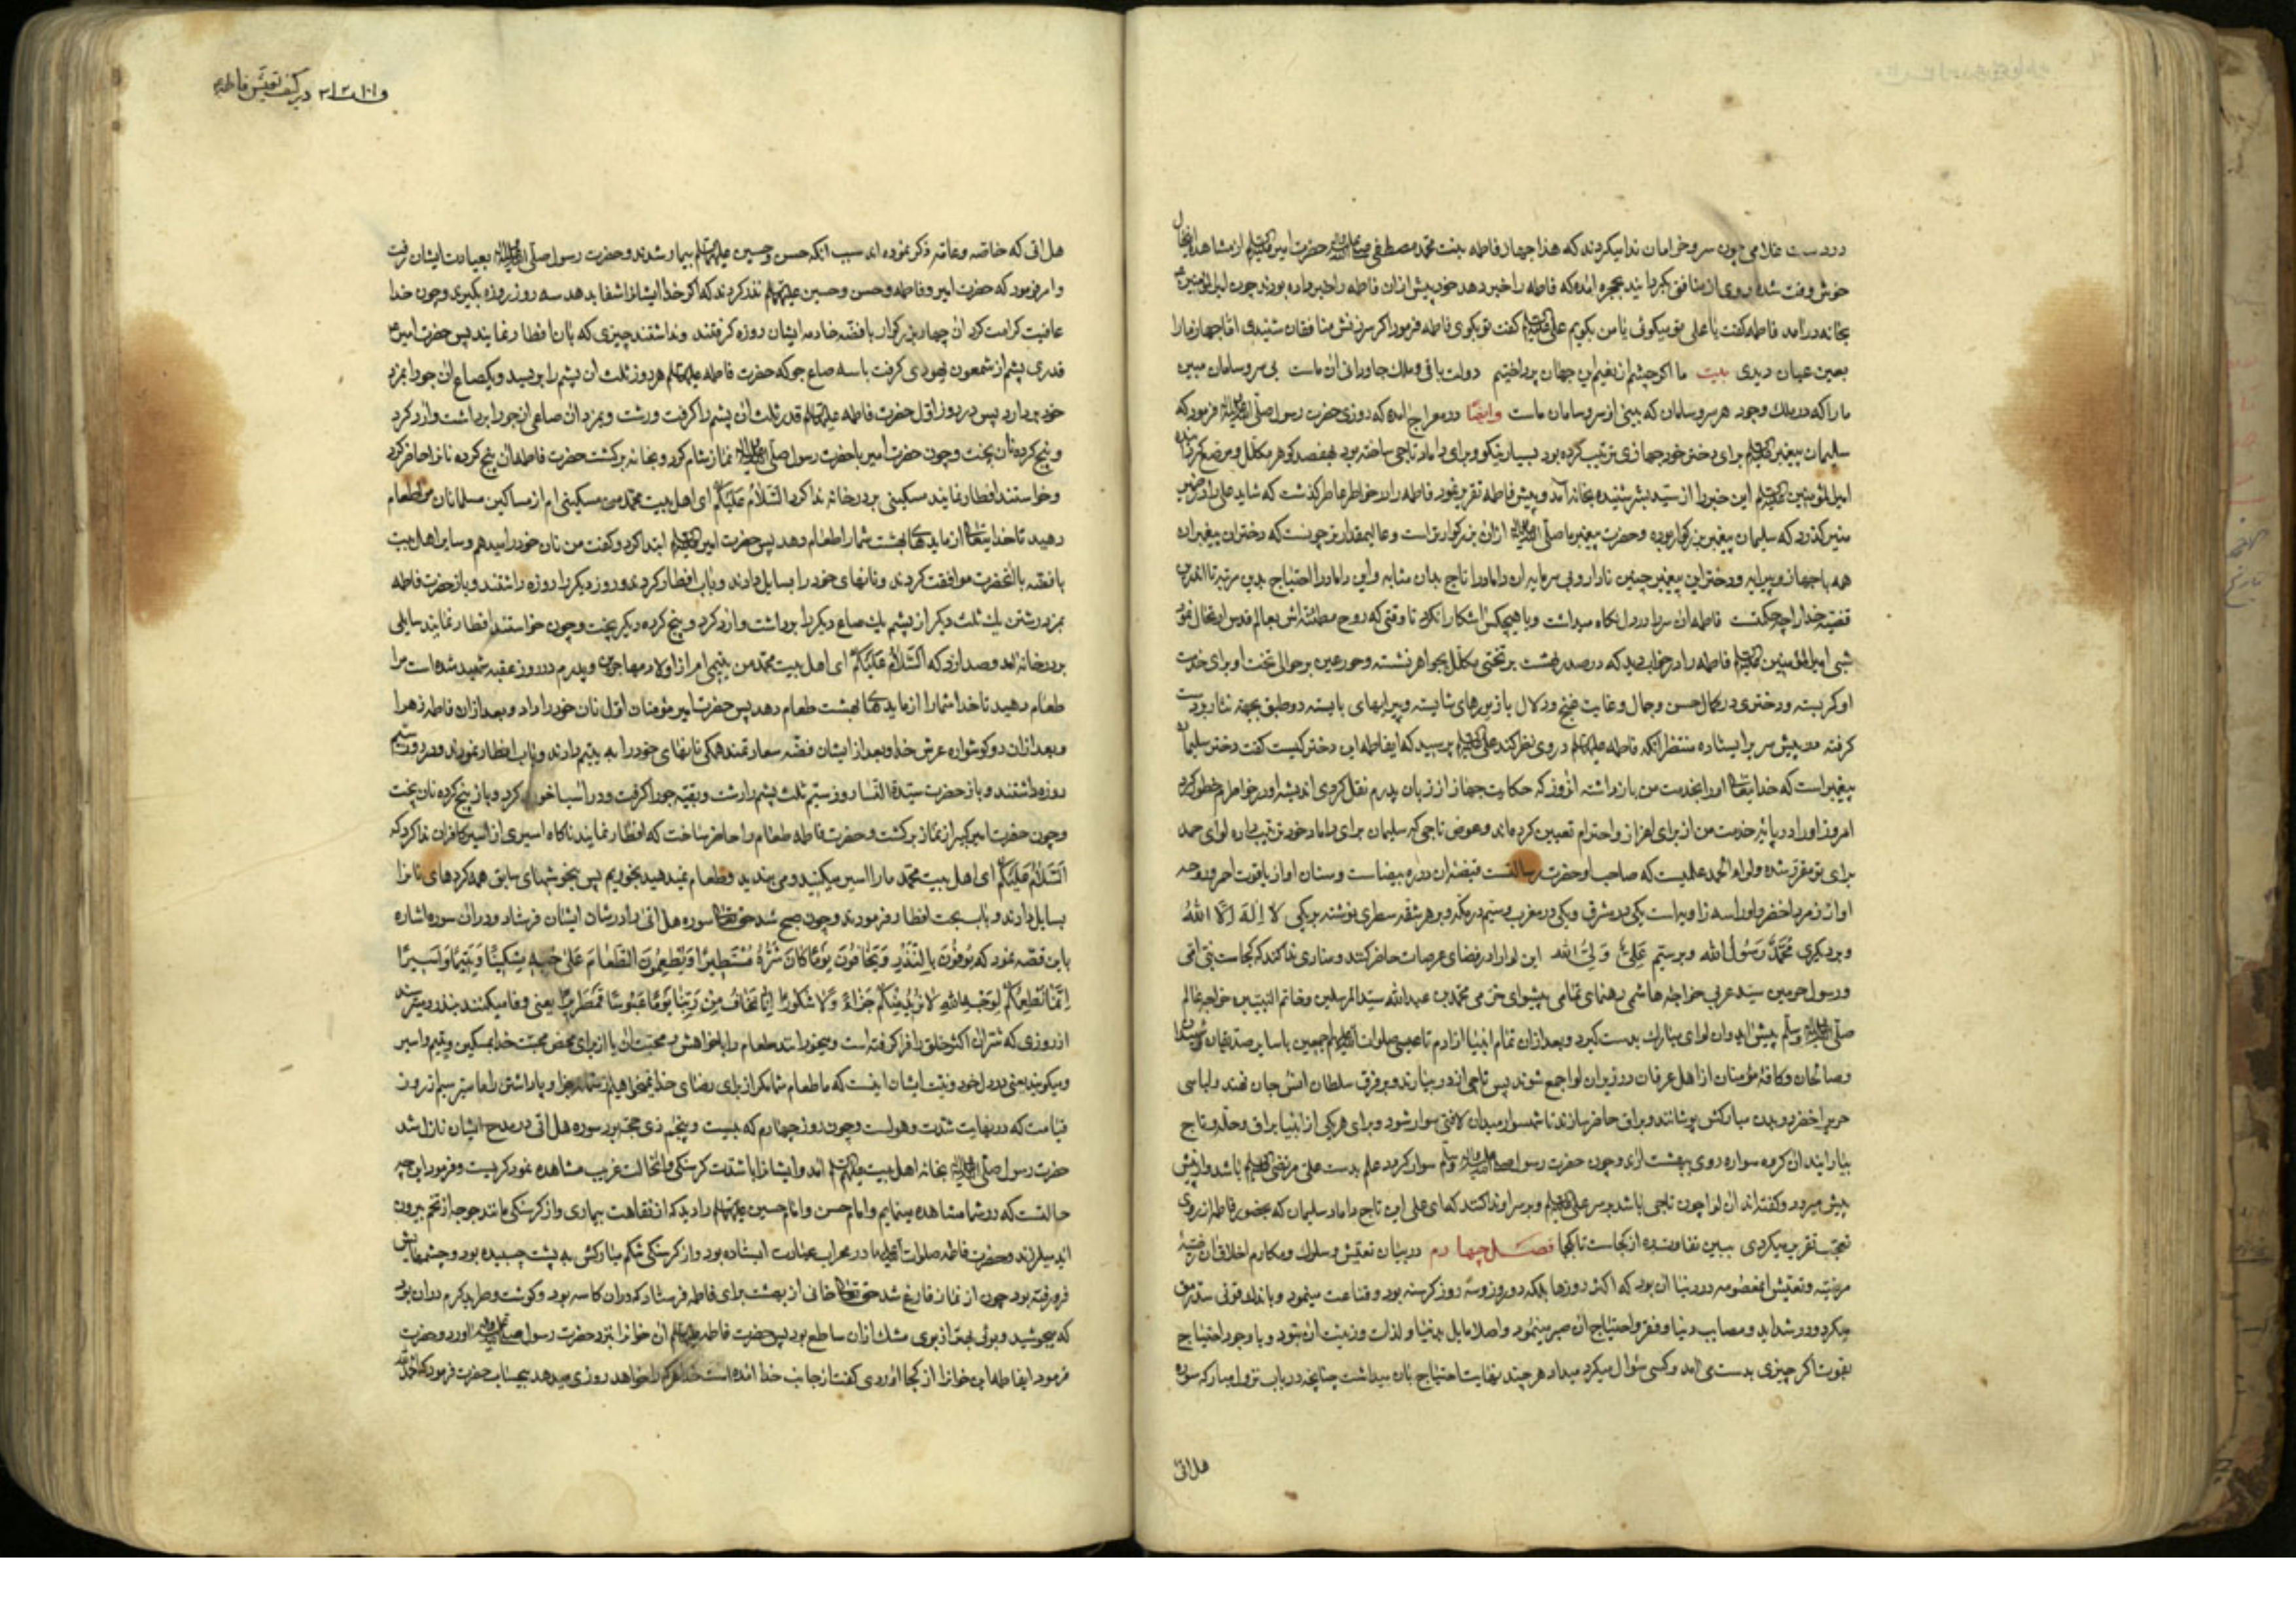 در دست غلامی چون سرو خرامان ندا میکردند که هذا جهاز فاطمه بنت محمد مصطفی حضرت امیر از مشاهده اینحال
خوش وقت شده روی از منافق بگردانید بحجره آمده که فاطمه را خبر دهد خود پیش ازان فاطمه را خبر داده بودند چون امیرالمؤمنین
بخانه درآمد فاطمه گفت یا علی تو میگوئی یا من بگویم علی گفت تو بگوی فاطمه فرمود اگر سرزنش منافقان شنیدی اما جهاز ما را
بعین عیان دیدی بیت ما اگر چشم از نعیم این جهان پرداختیم دولت باقی و ملک جاودانی ان ماست بی سر و سامان مبین
ما را که در ملک وجود هر سر و سامان که بینی از سر و سامان ماست وایضا در معراج آمده که روزی حضرت رسول صلی الله علیه وآله فرمود که
سلیمان پیغمبر برای دختر خود جهازی ترتیب کرده بود بسیار نیکو و برای داماد تاجی ساخته بود بهفصد گوهر مکلل و مرصع
امیرالمؤمنین این خبر را از سید بشر شنیده بخانه آمد و پیش فاطمه تقریر نمود فاطمه را در خاطر عاطر گذشت که شاید علی را در ضمیر
منیر گذرد که سلیمان پیغمبر بزرگوار بوده و حضرت پیغمبر ما صلی الله علیه وآله ازان بزرگوارتر است و عالیمقدارتر چونست که دختران پیغمبران
همه با جهاز و پیرایه و دختر این پیغمبر چنین نادار و بی سرمایه ان داماد را تاج بدان مثابه و این داماد را احتیاج بدین مرتبه تا
قضیه خدا را چه حکمتست فاطمه ان سر را در دل نگاه میداشت و با هیچکس آشکارا نکرد تا وقتی که روح مطمئنه اش بعالم قدس انتقال نمود
شبی امیرالمؤمنین فاطمه را در خواب دید که در صدر بهشت بر تختی مکلل بجواهر نشسته و حور عین بر حوالی تخت او برای خدمت
او کمر بسته و دختری در کمال حسن و جمال و غایت غنج و دلال با زیورهای شایسته و پیرایهای بایسته دو طبق بجهة نثار بر دست
گرفته در پیش سریر ایستاده منتظر آنکه فاطمه در وی نظر کند علی پرسید که ایفاطمه این دختر کیست گفت دختر سلیمان
پیغمبر است که خدایتعالی او را بخدمت من باز داشته انروز که حکایت جهاز از زبان پدرم نقل کردی اندیشه او در خاطرم خطور کرد
امروز او را در پایه خدمت من از برای اعزاز و احترام تعیین کرده اند و عوض تاجی که سلیمان برای داماد خود ترتیب داده لوای حمد
برای تو مقرر شده و لواء الحمد علمیست که صاحب او حضرت رسالتست قبضه ان دره بیضاست و سنان او از یاقوت احمر و درجه
او از زمرد اخضر و او را سه زاویه است یکی در مشرق و یکی در مغرب و سیم در مکه و بر هر شقه سطری نوشته بر یکی لا اله الا الله
و بر دیگری محمد رسول الله و بر سیم علی ولی الله این لوا را در فضای عرصات حاضر کنند و منادی ندا کند که کجاست نبی امی
و رسول حرمین سید عربی خواجه هاشمی رهنمای تهامی پیشوای حرمی محمد بن عبدالله سید المرسلین و خاتم النبیین خواجه عالم
صلی الله علیه وآله وسلم پیش آید و ان لوای مبارک بدست گیرد و بعد ازان تمام انبیا از آدم تا عیسی صلوات الله علیهم اجمعین با سایر صدیقان و شهیدان
و صالحان و کافه مؤمنان از اهل عرفان در زیر ان لوا جمع شوند پس تاجی از در بیارند و بر فرق سلطان انس و جان نهند و لباسی
حریر اخضر در بدن مبارکش پوشانند و براق حاضر سازند تا شهسوار میدان لافتی سوار شود و برای هر یکی از انبیا براق و حله و تاج
بیارایند ان گروه سواره روی ببهشت آرند و چون حضرت رسول سوار گردد علم بدست علی مرتضی باشد و از پیش
پیش میرود و گفته اند ان لوا چون تاجی باشد بر سر علی و بر سر او ندا کنند که ای علی این تاج داماد سلیمان که بحضور فاطمه از روی
تعجب تقریر میکردی ببین تفاوت ره از کجاست تا بکجا فصل چهارم در بیان تعیش و سلوک و مکارم اخلاق ان
مرضیه و تعیش انمعصومه در دنیا ان بود که اکثر روزها بلکه دو روز و سه روز گرسنه بود و قناعت مینمود و باندک قوتی سد رمق
میکرد و در شداید و مصایب دنیا و فقر و احتیاج ان صبر مینمود و اصلا مایل بدنیا و لذات و زینت ان نبود و با وجود احتیاج
بقوت اگر چیزی بدست می آمد و کسی سؤال میکرد میداد هر چند نهایت احتیاج بان میداشت چنانچه در باب نزول مبارکه سوره
هل اتی
در کیفیت تعیش فاطمه
هل اتی که خاصه و عامه ذکر نموده اند سبب آنکه حسن و حسین علیهما السلام بیمار شدند و حضرت رسول صلی الله علیه وآله بعیادت ایشان رفت
و امر نمود که حضرت امیر و فاطمه و حسن و حسین نذر کردند که اگر خدا ایشانرا شفا بدهد سه روز روزه بگیرند و چون خدا
عافیت کرامت کرد ان چهار بزرگوار با فضه خادمه ایشان روزه گرفتند و نداشتند چیزی که بان افطار نمایند پس حضرت امیر
قدری پشم از شمعون یهودی گرفت با سه صاع جو که حضرت فاطمه هر روز ثلث ان پشم را بریسد و یکصاع ان جو را بمزد
خود بردارد پس در روز اول حضرت فاطمه قدر ثلث ان پشم را گرفت و رشت و بمزد ان صاعی ان جو را برداشت و آرد کرد
و پنج گرده نان پخت و چون حضرت امیر با حضرت رسول صلی الله علیه وآله نماز شام کرد و بخانه برگشت حضرت فاطمه ان پنج گرده نانرا حاضر کرد
و خواستند افطار نمایند مسکینی بر در خانه ندا کرد السلام علیکم ای اهل بیت محمد من مسکینی ام از مساکین مسلمانان مرا طعام
دهید تا خدایتعالی از مایدهای بهشت شما را طعام دهد پس حضرت امیر ابتدا کرد و گفت من نان خود را میدهم و سایر اهل بیت
با فضه با آنحضرت موافقت کردند و نانهای خود را بسایل دادند و باب افطار کردند و روز دیگر را روزه داشتند و باز حضرت فاطمه
بمزد رشتن یک ثلث دیگر از پشم یک صاع دیگر را برداشت و آرد کرد و پنج گرده دیگر پخت و چون خواستند افطار نمایند سایلی
بر در خانه آمد و صدا زد که السلام علیکم ای اهل بیت محمد من یتیمی ام از اولاد مهاجرین و پدرم در روز عقبه شهید شده است مرا
طعام دهید تا خدا شما را از مایدهای بهشت طعام دهد پس حضرت امیر مؤمنان اول نان خود را داد و بعد ازان فاطمه زهرا
و بعد ازان دو گوشواره عرش خدا و بعد از ایشان فضه سعادتمند همگی نانهای خود را به یتیم دادند و باب افطار نمودند و در روز سیم
روزه داشتند و باز حضرت سیدة النسا روز سیم ثلث پشم را رشت و بقیه جو را گرفت و در آسیا خورد کرد و باز پنج گرده نان پخت
و چون حضرت امیر کبیر از نماز برگشت و حضرت فاطمه طعام را حاضر ساخت که افطار نمایند ناگاه اسیری از اسیر کافران ندا کرد که
السلام علیکم ای اهل بیت محمد ما را اسیر میکنید و می بندید و طعام نمیدهید بخوریم پس بخوشهای سابق همه گردهای نانرا
بسایل دادند و باب بحت افطار فرمودند و چون صبح شد حق تعالی سوره هل اتی را در شان ایشان فرستاد و در ان سوره اشاره
باین قصه نمود که یوفون بالنذر و یخافون یوما کان شره مستطیرا و یطعمون الطعام علی حبه مسکینا و یتیما و اسیرا
انما نطعمکم لوجه الله لا نرید منکم جزاء و لا شکورا انا نخاف من ربنا یوما عبوسا قمطریرا یعنی وفا میکنند بنذر و میترسند
از روزی که شر ان اکثر خلق را فرا گرفته است و میخورانند طعام را با خواهش و محبت ان یا از برای محض محبت خدا بمسکین و یتیم و اسیر
و میگویند یعنی در دل خود و نیت ایشان اینست که ما طعام شما مگر از برای رضای خدا نمیخواهیم از شما جزا و پاداشتی را ما میترسیم از روز
قیامت که در نهایت شدت و هولست و چون روز چهارم که بیست و پنجم ذی حجه بود سوره هل اتی در مدح ایشان نازل شد
حضرت رسول صلی الله علیه وآله بخانه اهل بیت آمد و ایشانرا با شدت گرسنگی و انحالت غریب مشاهده نمود گریست و فرمود این چه
حالتست که در شما مشاهده مینمایم و امام حسن و امام حسین را دید که از نقاهت بیماری و از گرسنگی مانند جوجه از تخم بیرون
آمد میلرزند و حضرت فاطمه صلوات الله علیها در محراب عبادت ایستاده بود و از گرسنگی شکم مبارکش به پشت چسبیده بود و چشمهایش
فرو رفته بود چون از نماز فارغ شد حق تعالی خانی از بهشت برای فاطمه فرستاد که دران کاسه بود و گوشت و طرید گرم دران بود
که میجوشید و بوئی بهتر از بوی مشک ازان ساطع بود پس حضرت فاطمه ان خوانرا بنزد حضرت رسول آورد و حضرت
فرمود ایفاطمه این خوانرا از کجا آوردی گفت از جانب خدا آمده است خدا هر که را خواهد روزی میدهد بیحساب حضرت فرمود که الحمد لله